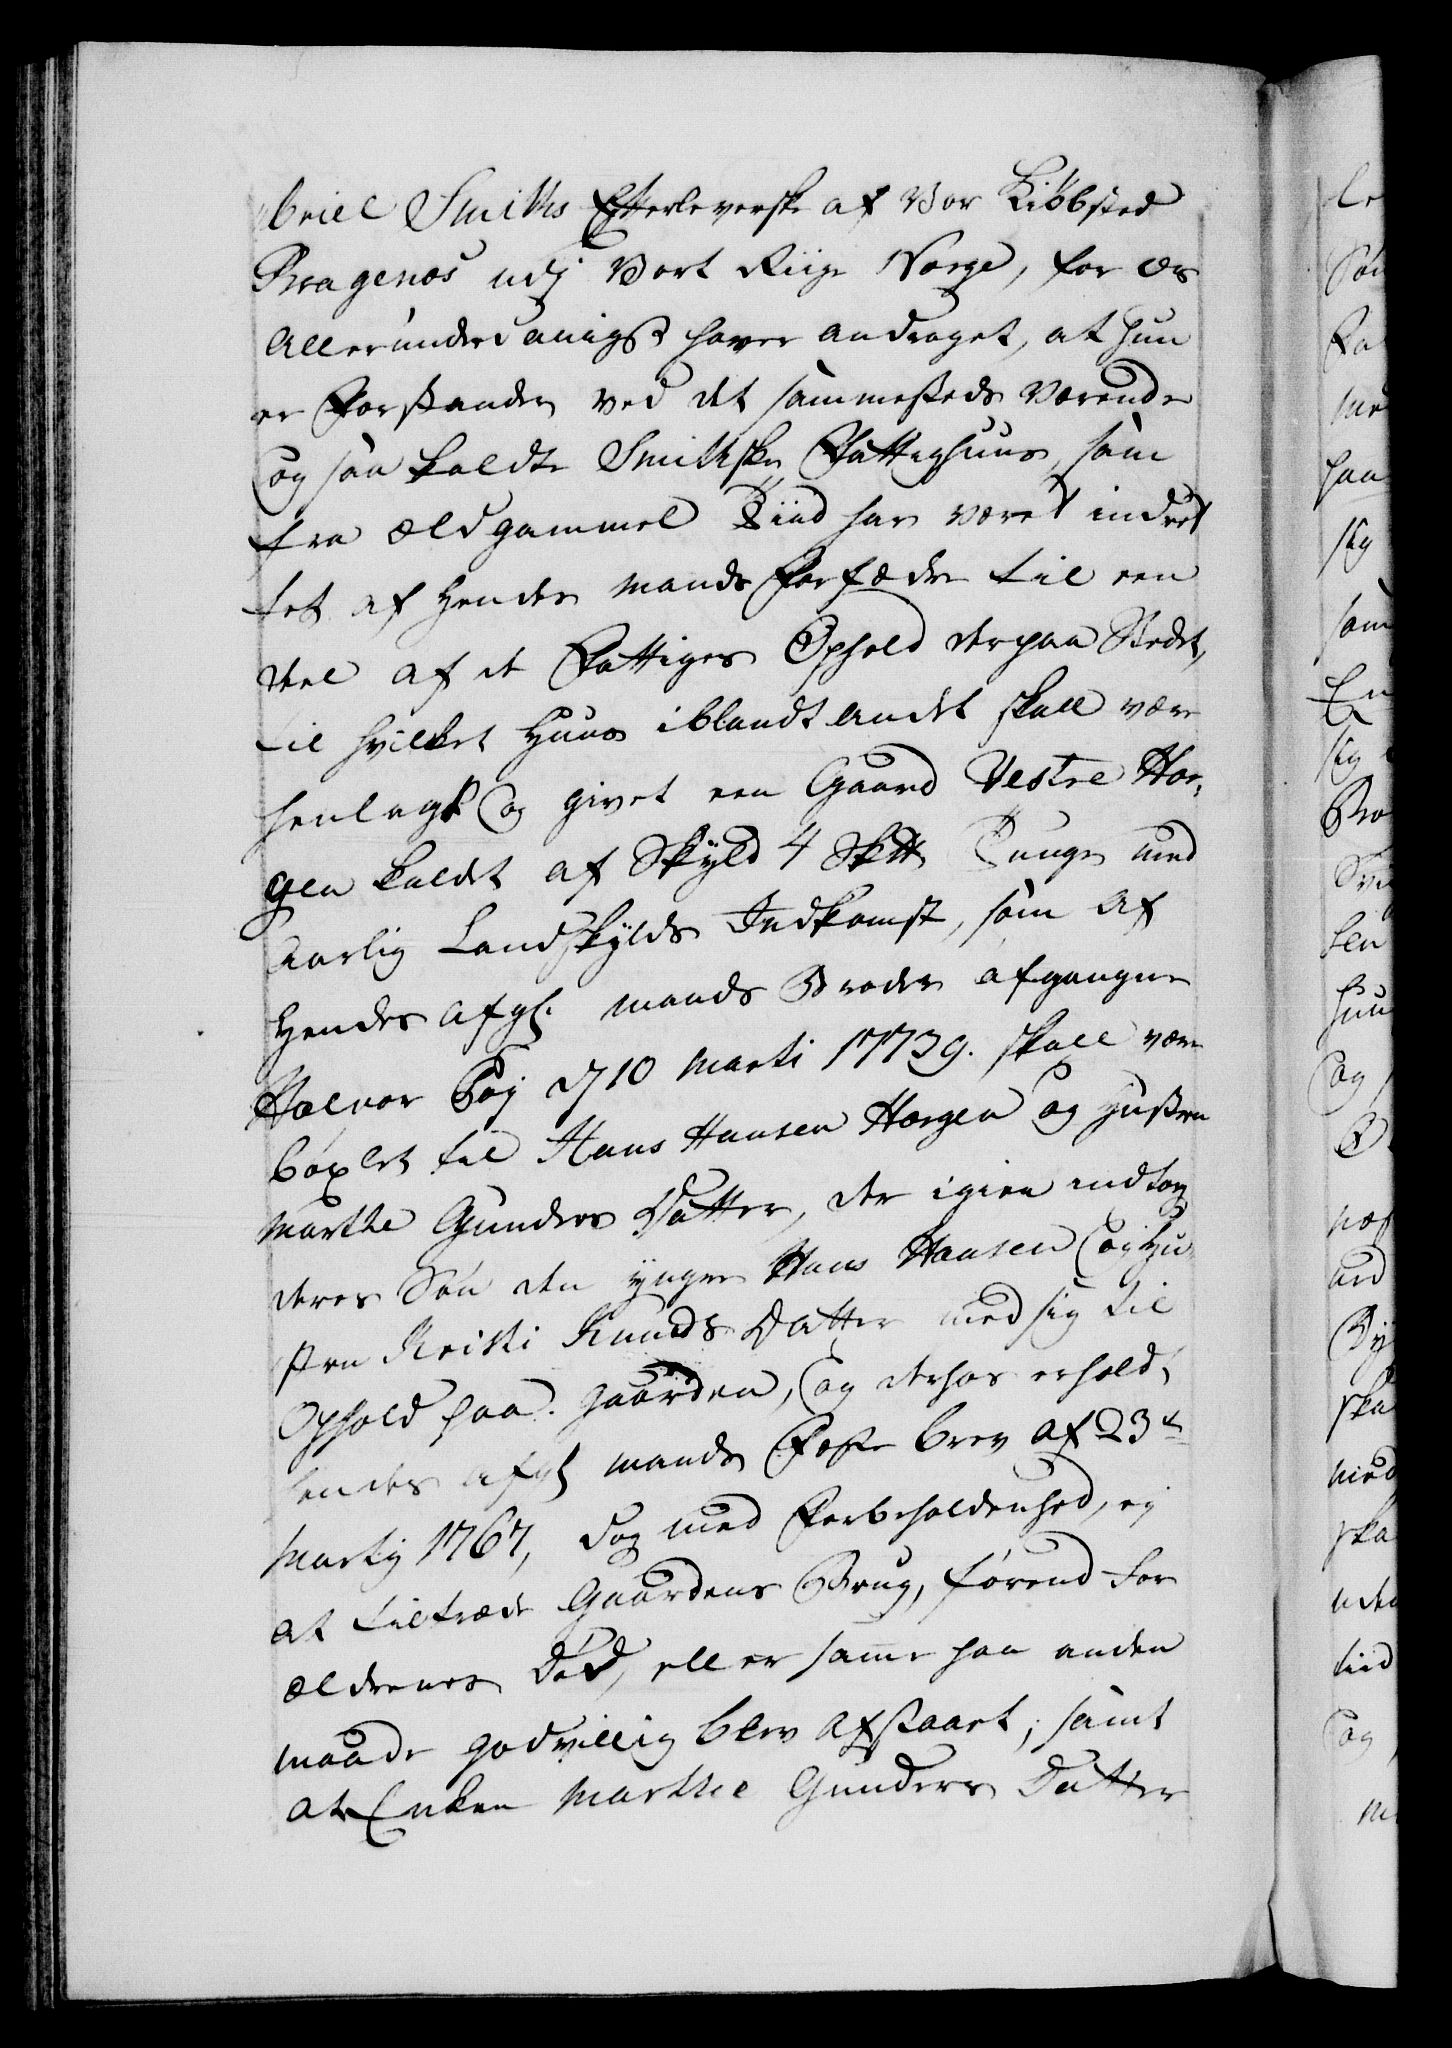 briel Smiths Efterleverske af Vor Kiöbsted
Bragenæs udj Vort Riige Norge, for Os
Allerunderdanigst haver andraget, at hun
er Forstander ved det sammesteds værende
og saa kaldte Smithske Fattighuus, som
fra ældgammel Tiid har været indret
tet af Hendes Mands Forfædre til een
deel af de Fattiges Ophold der paa Stedet,
til hvilket Huus iblandt andet skall være
henlagt og givet een Gaard Vestre Hor,
gen kaldet af Skyld 4 Sktt Tunge med
Aarlig Landskylds Indkomst, som af
Hendes afg. Mands Broder afgangne
Halvor Boy d 10 Marti 17739. skall være
böxlet til Hans Hansen Horgen og Hustru
Marthe Gunders Datter, der igien indtog
deres Søn den yngre Hans Hansen og Hu
stru Kristi Knuds Datter med sig til
Ophold paa Gaarden, og derhos erholdt
hendes afg. Mands Fæste brev af 23de
Martij 1767, dog med Forbeholdenhed, ej
at tiltræde Gaardens Brug, førend For
ældrenes Död, eller samme paa anden
maade godvillig blev afstaaet; samt
at Enken Marthe Gunders Datter